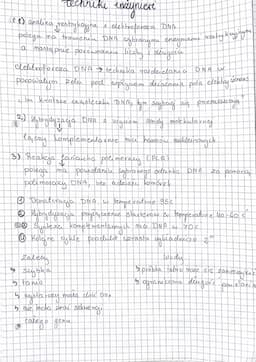 techniki inżynierii
1) analiza restrykcyjna i elektroforeza DNA
polega na trawieniu DNA wybranymi enzymami restrykcyjnymi
a następnie porównaniu liczby i długości
elektroforeza DNA → technika rozdzielania DNA w
porowatym żelu pod wpływem działania pola elektrycznego
im krótsze cząsteczki DNA, tym szybciej się przemieszczają
2) Hybrydyzacja DNA z użyciem sondy molekularnej
łączy komplementarne nici kwasów nukleinowych
3) Reakcja łańcuchowa polimerazy (PCR)
polega na powielaniu wybranego odcinka DNA za pomocą
polimerazy DNA, bez udziału komórek
① Denaturacja DNA w temperaturze 95°C
② Hybrydyzacja przyłączenie starterów w temperaturze 40-60 c°
③ Synteza komplementarnych nici DNA w 70°C
④ Kolejne cykle produkt wzrasta wykładniczo 2ⁿ
zalety wady
↳ szybka ↳ próbka łatwo może się zanieczyścić
↳ tania ↳ ograniczona długość powielania
↳ wystarczy mała ilość DNA
↳ nie trzeba znać sekwencji
całego genu